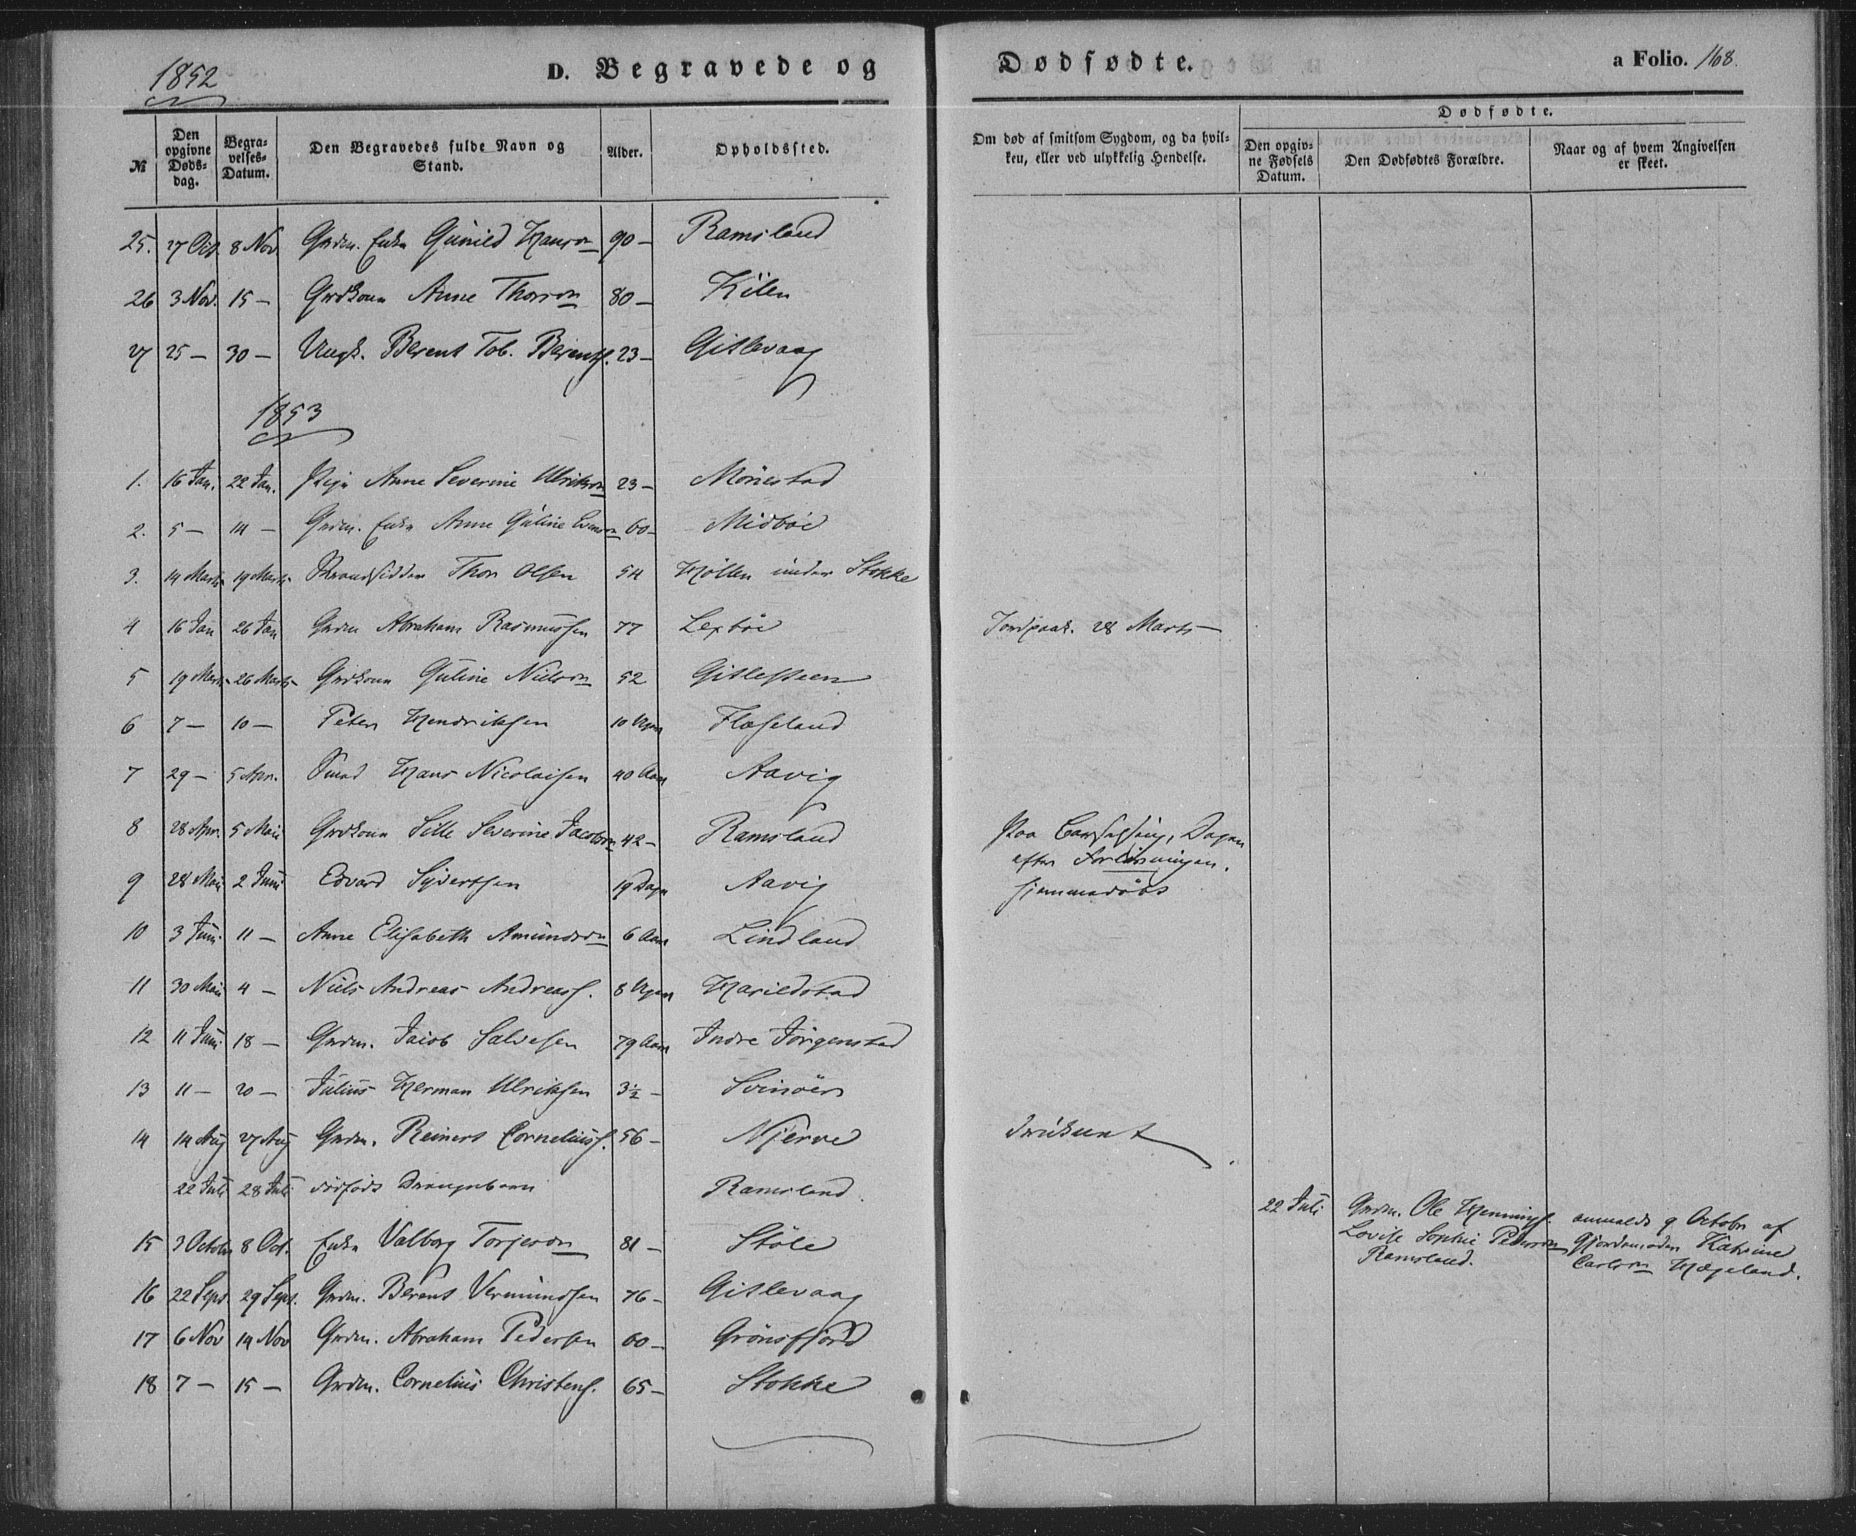 1852
D. Begravede og Dødfødte.
a Folio. 168.
№
Den opgivne Døds-dag.
Begra-velses-Datum.
Den Begravedes fulde Navn og Stand.
Alder.
Opholdssted.
Om død af smitsom Sygdom, og da hvil-ken, eller ved ulykkelig Hendelse.
Dødfødte.
Den opgiv-ne Fødsels Datum.
Den Dødfødtes Forældre.
Naar og af hvem Angivelsen er skeet.
25. 27 Oct. 8 Nov Grdm. Enke Gunild Hansdn 90 — Ramsland
26 3 Nov. 15 — Grdkone Anne Thorsdn 80 — Kilen
27 25 — 30 — Ungk. Berent Tob. Berents. 23 — Gitlevaag
1853
1. 16 Jan. 22 Jan. Pige Anne Severine Ulriksdn 23 — Mönestad
2. 5 — 14 — Grdm. Enke Anne Guline Evensdn 60 — Midböe
3. 14 Marts 19 Marts Strandsidder Thor Olsen 54 Hôllen under Stokke
4 16 Jan 26 Jan Grdm Abraham Rasmussen 77 Lexböe Jordpaak. 28 Marts —
5 19 Marts 26 Marts Grdkone Guline Nielsdn 52 Gitlesteen
6 7 — 10 — Peter Hendriksen 10 Ugen Flageland
7 29 — 5 Apr. Smed Hans Nicolaisen 40 Aar Aavig
8 28 Apr. 5 Mai Grdkone Sille Severine Jacobsdn 42 — Ramsland Paa Barselseng, Dagen
efter Forlösningen.
9 28 Mai 2 Juni Edvard Syvertsen 19 Dage Aavig hjemmedöbt
10 3 Juni 11 — Anne Elisabeth Amundsdn 6 Aar Lindland
11 30 Mai 4 — Niels Andreas Andreass. 8 Ugen Harildstad
12 11 Juni 18 — Grdm. Jacob Salvesen 79 Aar Indre Jörgenstad
13 11 — 20 — Julius Herman Ulriksen 3½ — Svinöer
14 14 Aug 27 Aug Grdm. Reinert Corneliuss. 56 — Njerve druknet
22 Juli 28 Juli dödfödt Drengebarn Ramsland.
22 Juli Grdm. Ole Hennings. anmeldt 9 October af
Lovise Sophie Pedersdn Gjordemoder Kathrine
Ramsland. Carlsdn Hægeland.
15 3 October 8 Oct. Enke Valborg Torjersdn 81 — Stöle
16 22 Sept. 29 Sept. Grdm. Berent Vermundsen 76 — Gitlevaag
17 6 Nov 14 Nov Grdm. Abraham Pedersen 60 — Grönsfjord
18 7 — 15 — Grdm. Cornelius Christens. 65 — Stokke